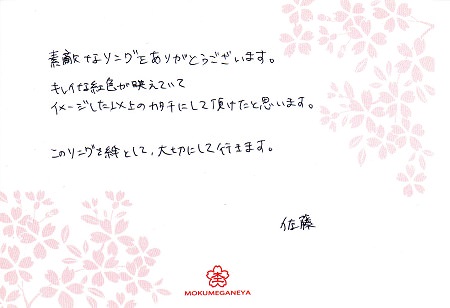 素敵なリングをありがとうございます。
キレイな紅色が映えていて
イメージした以上のカタチにして頂けたと思います。
このリングを絆として、大切にして行きます。
佐藤
MOKUMEGANEYA